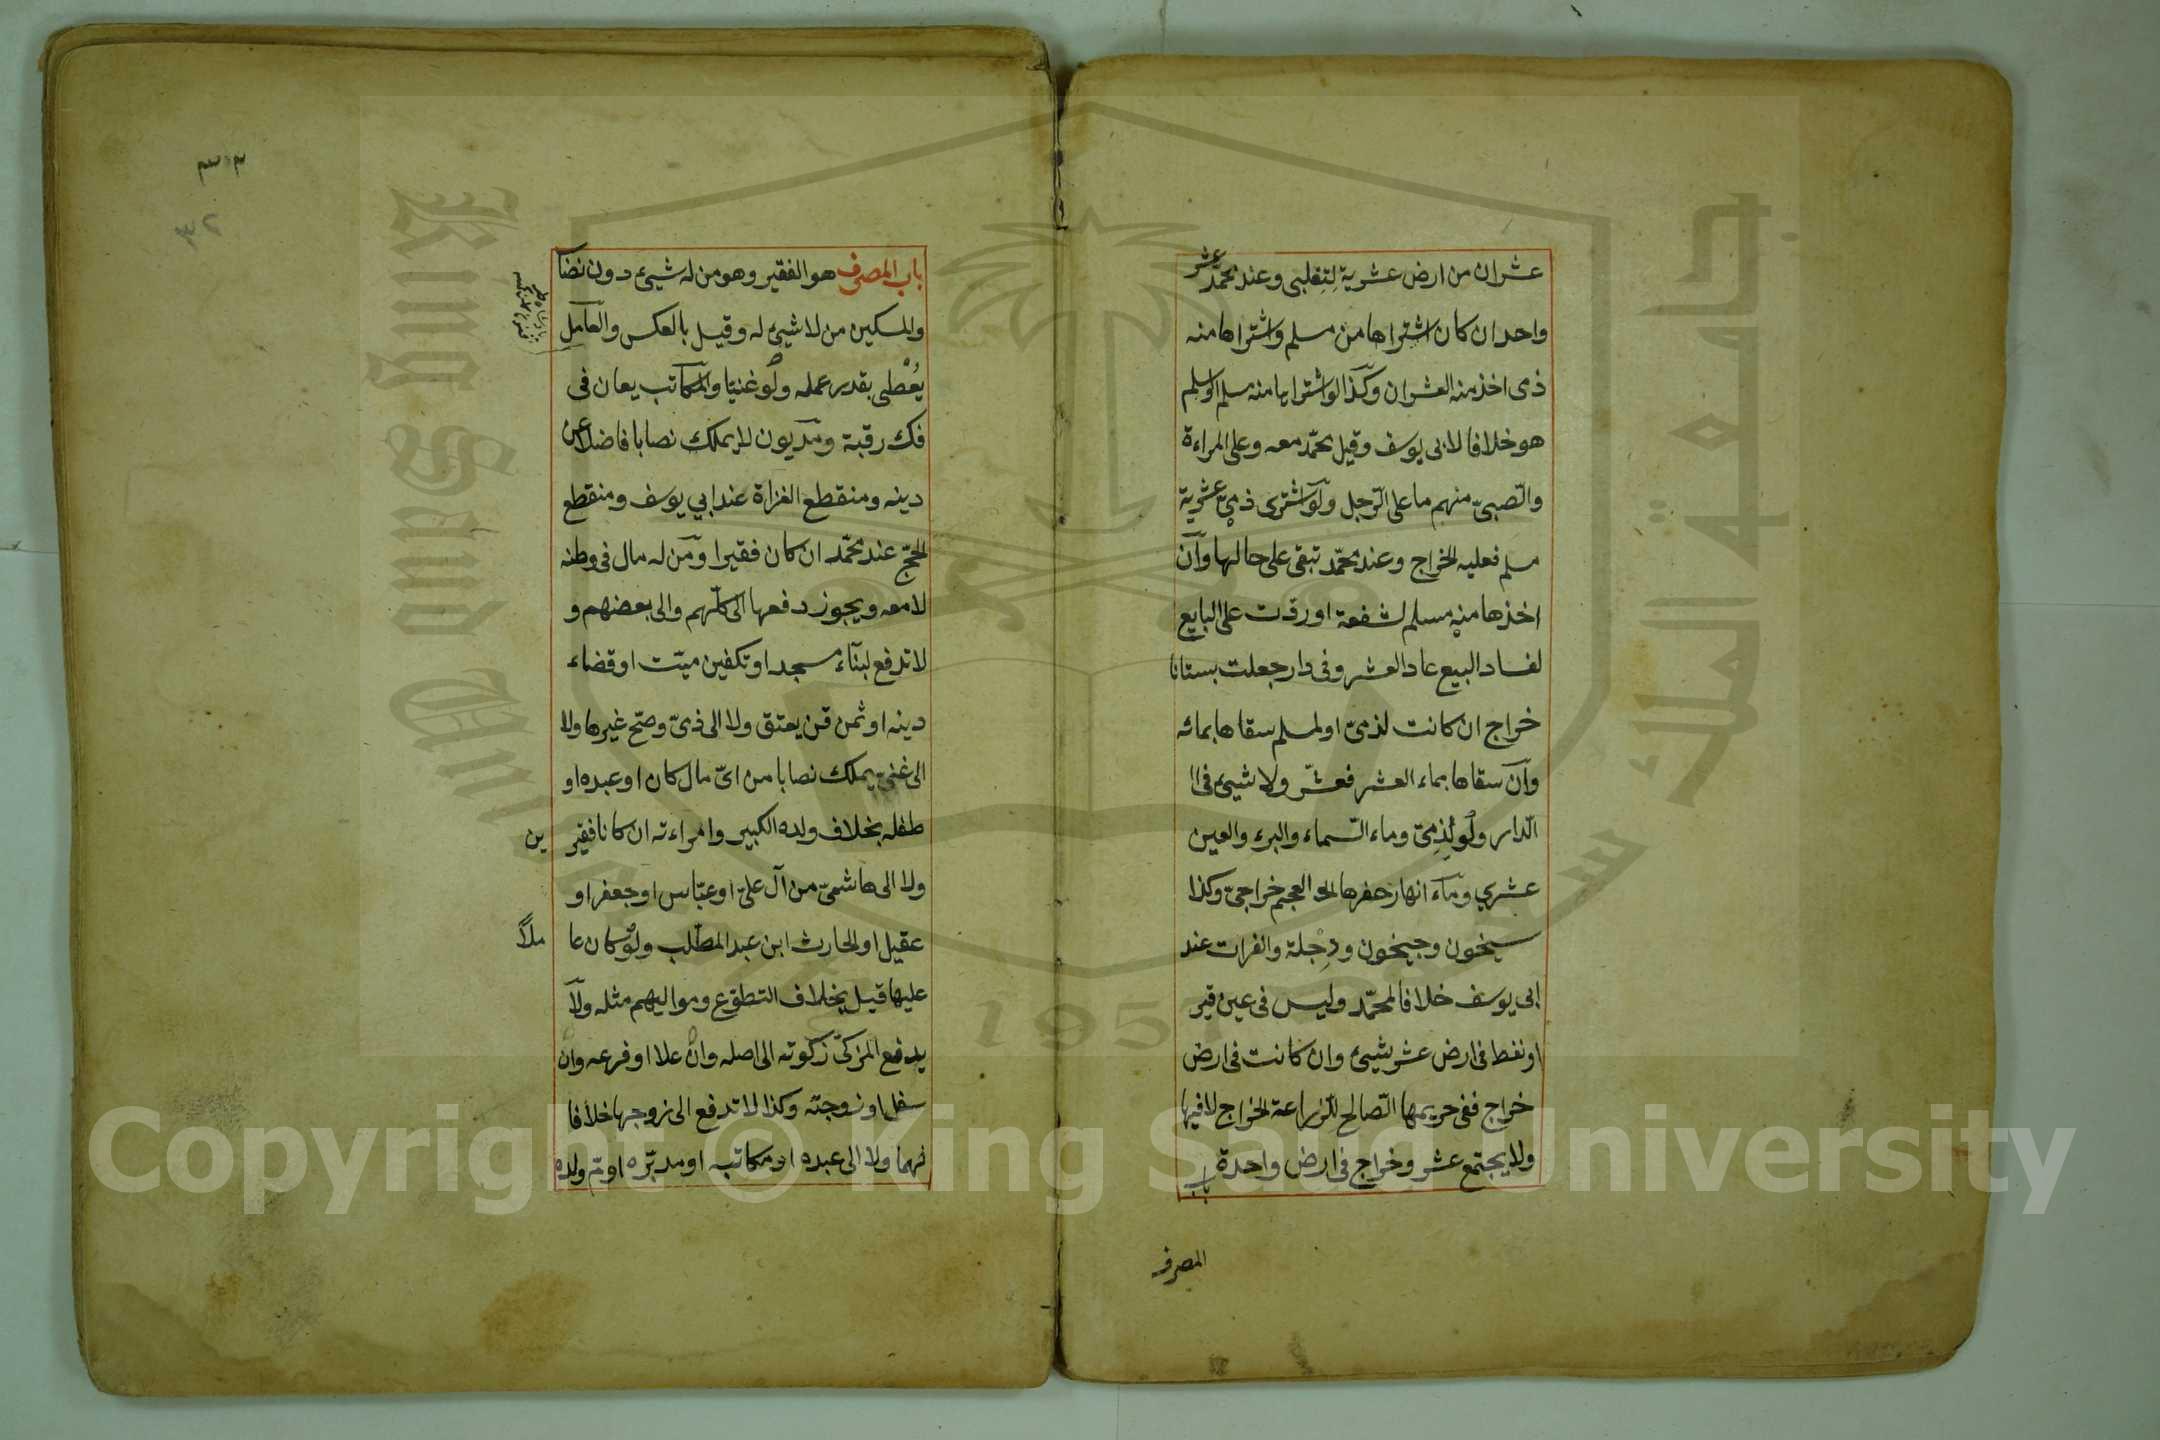 عشران من ارض عشرية لتغلبى وعند محمّد عشر
واحد ان كان اشتراها من مسلم واشتراها منه
ذمى اخذ منه العشران وكذا لو اشتراها منه مسلم او اسلم
هو خلافا لابى يوسف وقيل محمّد معه وعلى المراءة
والصّبىّ منهم ما على الرّجل ولو اشترى ذمىّ عشرية
مسلم فعليه الخراج وعند محمّد تبقى على حالها وان
اخذها منه مسلم لشفعة او ردّت على البايع
لفساد البيع عاد العشر وفى دار جعلت بستانا
خراج ان كانت لذمىّ او لمسلم سقاها بمائه
وان سقاها بماء العشر فعشر ولا شيئ فى ا
الدّار ولو لذمىّ وماء السّماء والبرء والعين
عشري وماء انهار حفرها العجم خراجىّ وكذا
سيخون وجيخون ودجلة والفرات عند
ابى يوسف خلافا لمحمّد وليس فى عين قير
او نفط فى ارض عشر شيئ وان كانت فى ارض
خراج ففى حريمها الصّالح للزراعة الخراج لا فيها
ولا يجتمع عشر وخراج فى ارض واحدة باب
المصرف
٣٠٣
٣٢
باب المصرف هو الفقير وهو من له شيئ دون نصا
والمسكين من لا شيئ له وقيل بالعكس والعامل
يُعْطى بقدر عمله ولو غنيّا والمكاتب يعان فى
فك رقبة ومديون لا يملك نصابا فاضلا عن
دينه ومنقطع الغزارة عند ابي يوسف ومنقطع
الحجّ عند محمّد ان كان فقيرا ومن له مال فى وطنه
لا معه ويجوز دفعها الى كلّهم والى بعضهم و
لا تدفع لبناء مسجد او تكفين ميّت او قضاء
دينه او ثمن قن يعتق ولا الى ذمىّ وصحّ غيرها ولا
الى غنىّ يملك نصابا من اىّ مال كان او عبده او
طفله بخلاف ولده الكبير وامراءته ان كانا فقير
ين
ولا الى هاشمىّ من آل علىّ او عبّاس او جعفر او
عقيل او الحارث ابن عبد المطّلب ولو كان عا
ملاً
عليها قيل بخلاف التطوّع ومواليهم مثله ولا
يدفع المزكىّ زكوته الى اصله وان علا او فرعه وان
سفل او زوجته وكذا لا تدفع الى زوجها خلافا
لهما ولا الى عبده او مكاتبه او مدبّره او امّ ولده
Copyright © King Saud University
جامعة الملك سعود
King Saud University
195